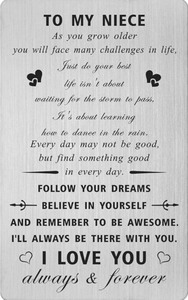 TO MY NIECE
As you grow older
you will face many challenges in life,
Just do your best
life isn't about
waiting for the storm to pass,
It's about learning
how to dance in the rain.
Every day may not be good,
but find something good
in every day.
FOLLOW YOUR DREAMS
BELIEVE IN YOURSELF
AND REMEMBER TO BE AWESOME.
I'LL ALWAYS BE THERE WITH YOU.
I LOVE YOU
always & forever